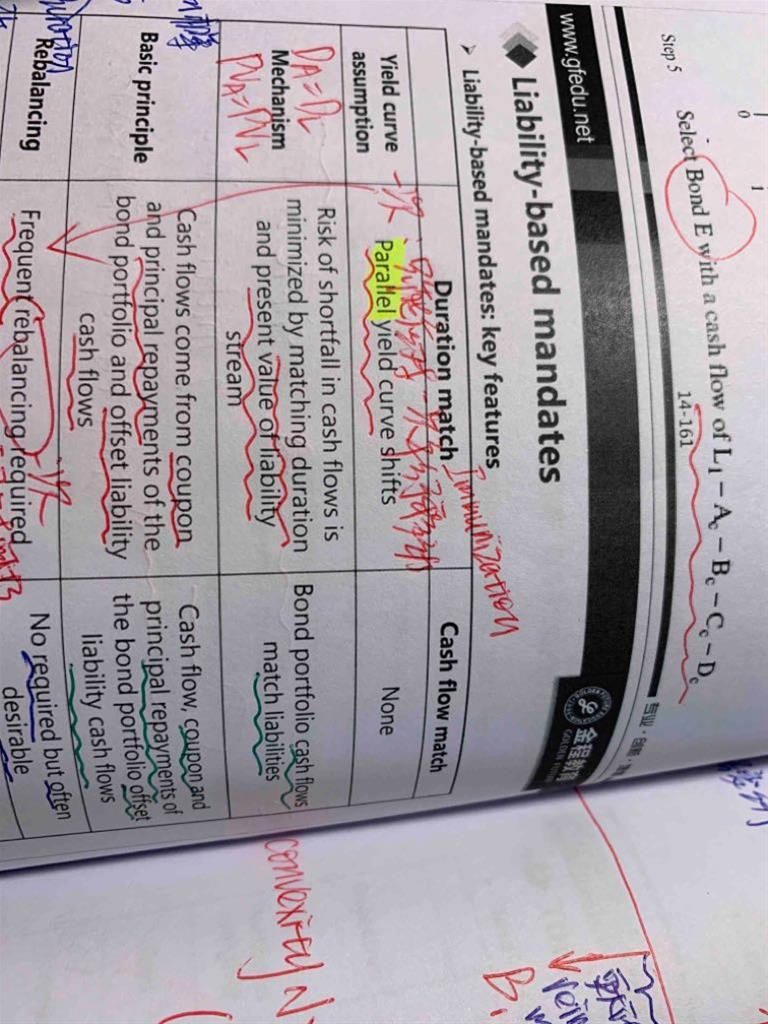 0 1
Step 5 Select Bond E with a cash flow of L₁ − A꜀ − B꜀ − C꜀ − D꜀
14-161
www.gfedu.net
专业·创新·
金程教育
GOLDEN FUTURE
Liability-based mandates
Liability-based mandates: key features
Immunization
Duration match Cash flow match
Yield curve
assumption
Parallel yield curve shifts
None
DA=DL
Mechanism
PVA=PVL
Risk of shortfall in cash flows is
minimized by matching duration
and present value of liability
stream
Bond portfolio cash flows
match liabilities
Basic principle
Cash flows come from coupon
and principal repayments of the
bond portfolio and offset liability
cash flows
Cash flow, coupon and
principal repayments of
the bond portfolio offset
liability cash flows
Rebalancing
Frequent rebalancing required
No required but often
desirable
convexity
B.